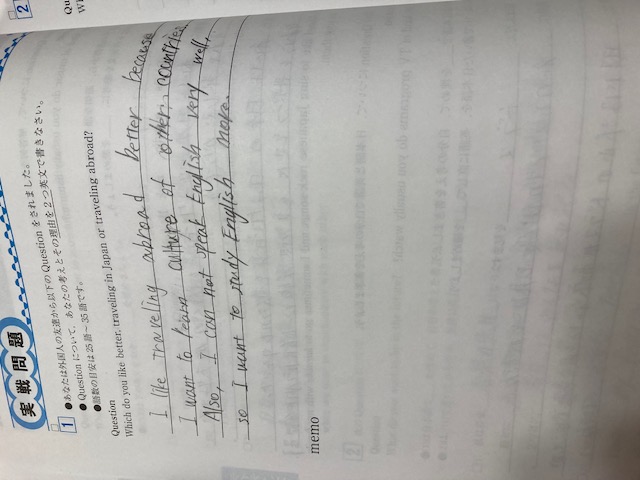 実戦問題
1
●あなたは外国人の友達から以下のQuestionをされました。
●Questionについて、あなたの考えとその理由を2つ英文で書きなさい。
●語数の目安は25語~35語です。
Question
Which do you like better, traveling in Japan or traveling abroad?
I like traveling abroad better because
I want to learn culture of other countries.
Also, I can not speak English very well,
so I want to study English more.
memo
2
Qu